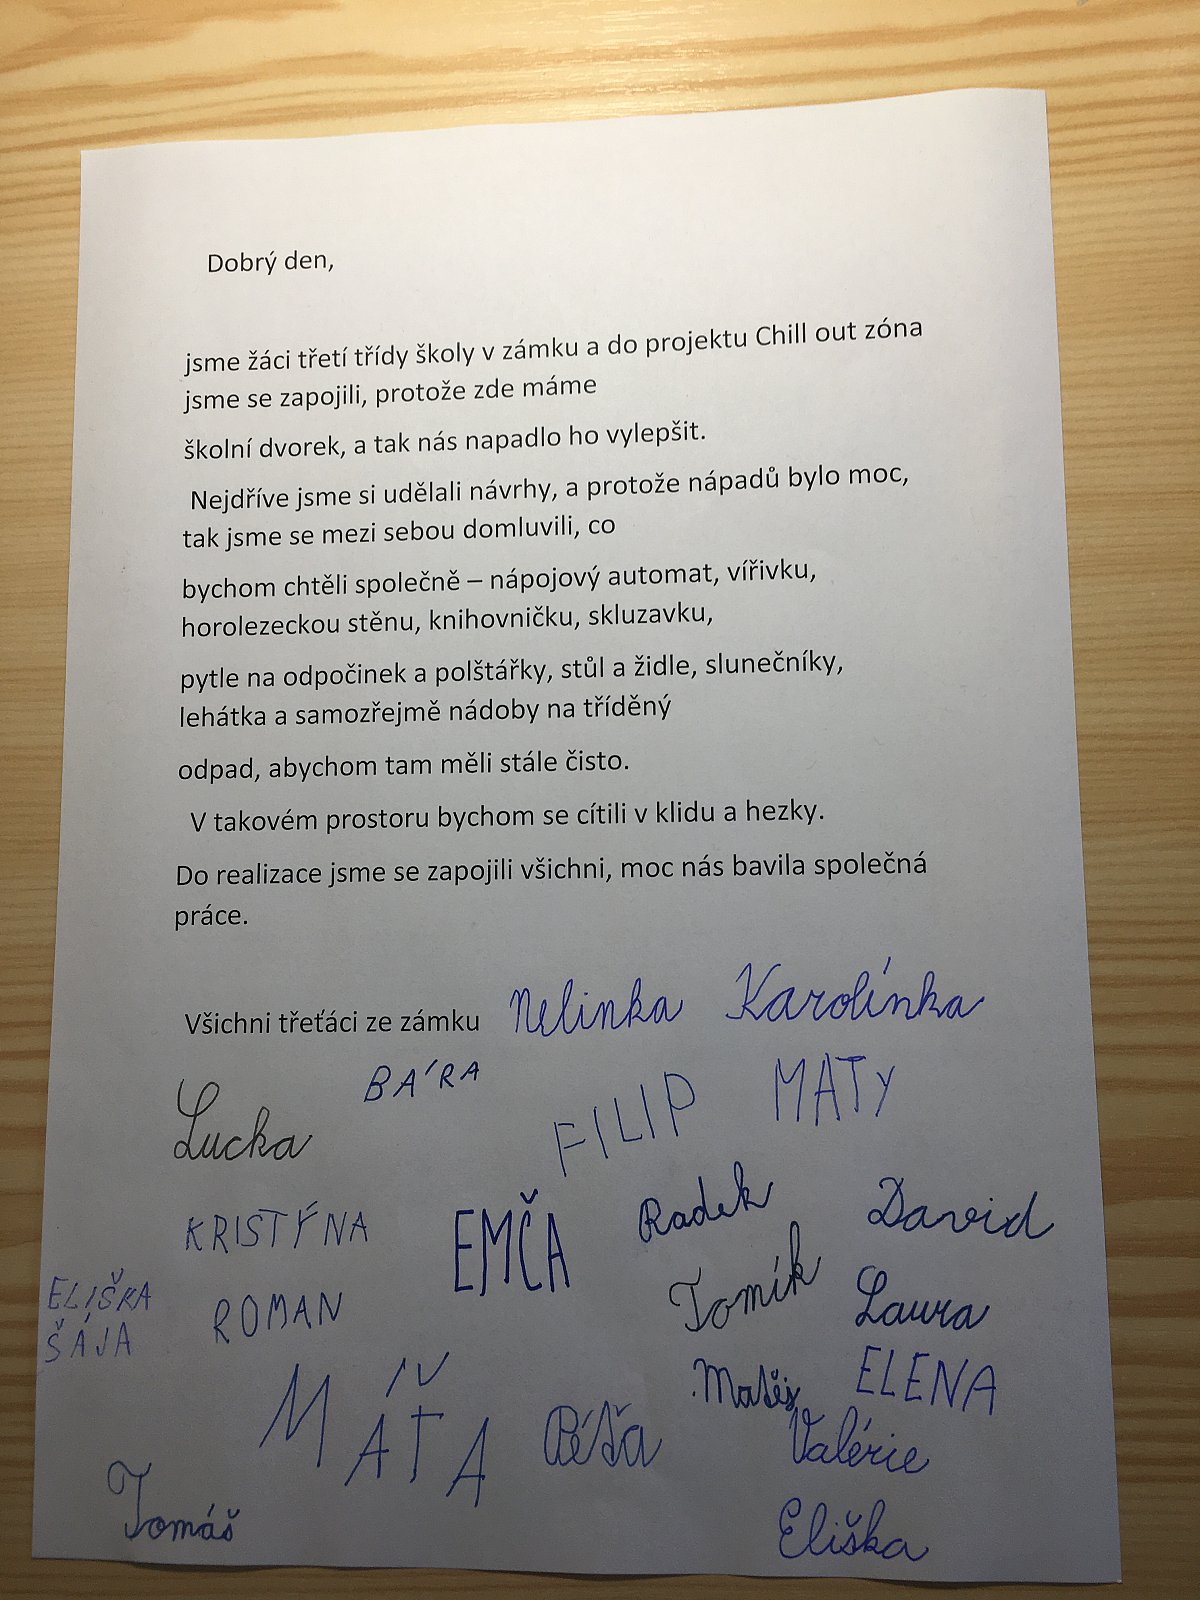 Dobrý den,
jsme žáci třetí třídy školy v zámku a do projektu Chill out zóna
jsme se zapojili, protože zde máme
školní dvorek, a tak nás napadlo ho vylepšit.
Nejdříve jsme si udělali návrhy, a protože nápadů bylo moc,
tak jsme se mezi sebou domluvili, co
bychom chtěli společně – nápojový automat, vířivku,
horolezeckou stěnu, knihovničku, skluzavku,
pytle na odpočinek a polštářky, stůl a židle, slunečníky,
lehátka a samozřejmě nádoby na tříděný
odpad, abychom tam měli stále čisto.
V takovém prostoru bychom se cítili v klidu a hezky.
Do realizace jsme se zapojili všichni, moc nás bavila společná
práce.
Všichni třeťáci ze zámku Nelinka Karolínka
Lucka BÁRA FILIP MATY
KRISTÝNA EMČA Radek David
ELIŠKA ROMAN Tomík Laura
ŠÁJA
MÁŤA Péťa Matěj ELENA
Valérie
Tomáš Eliška